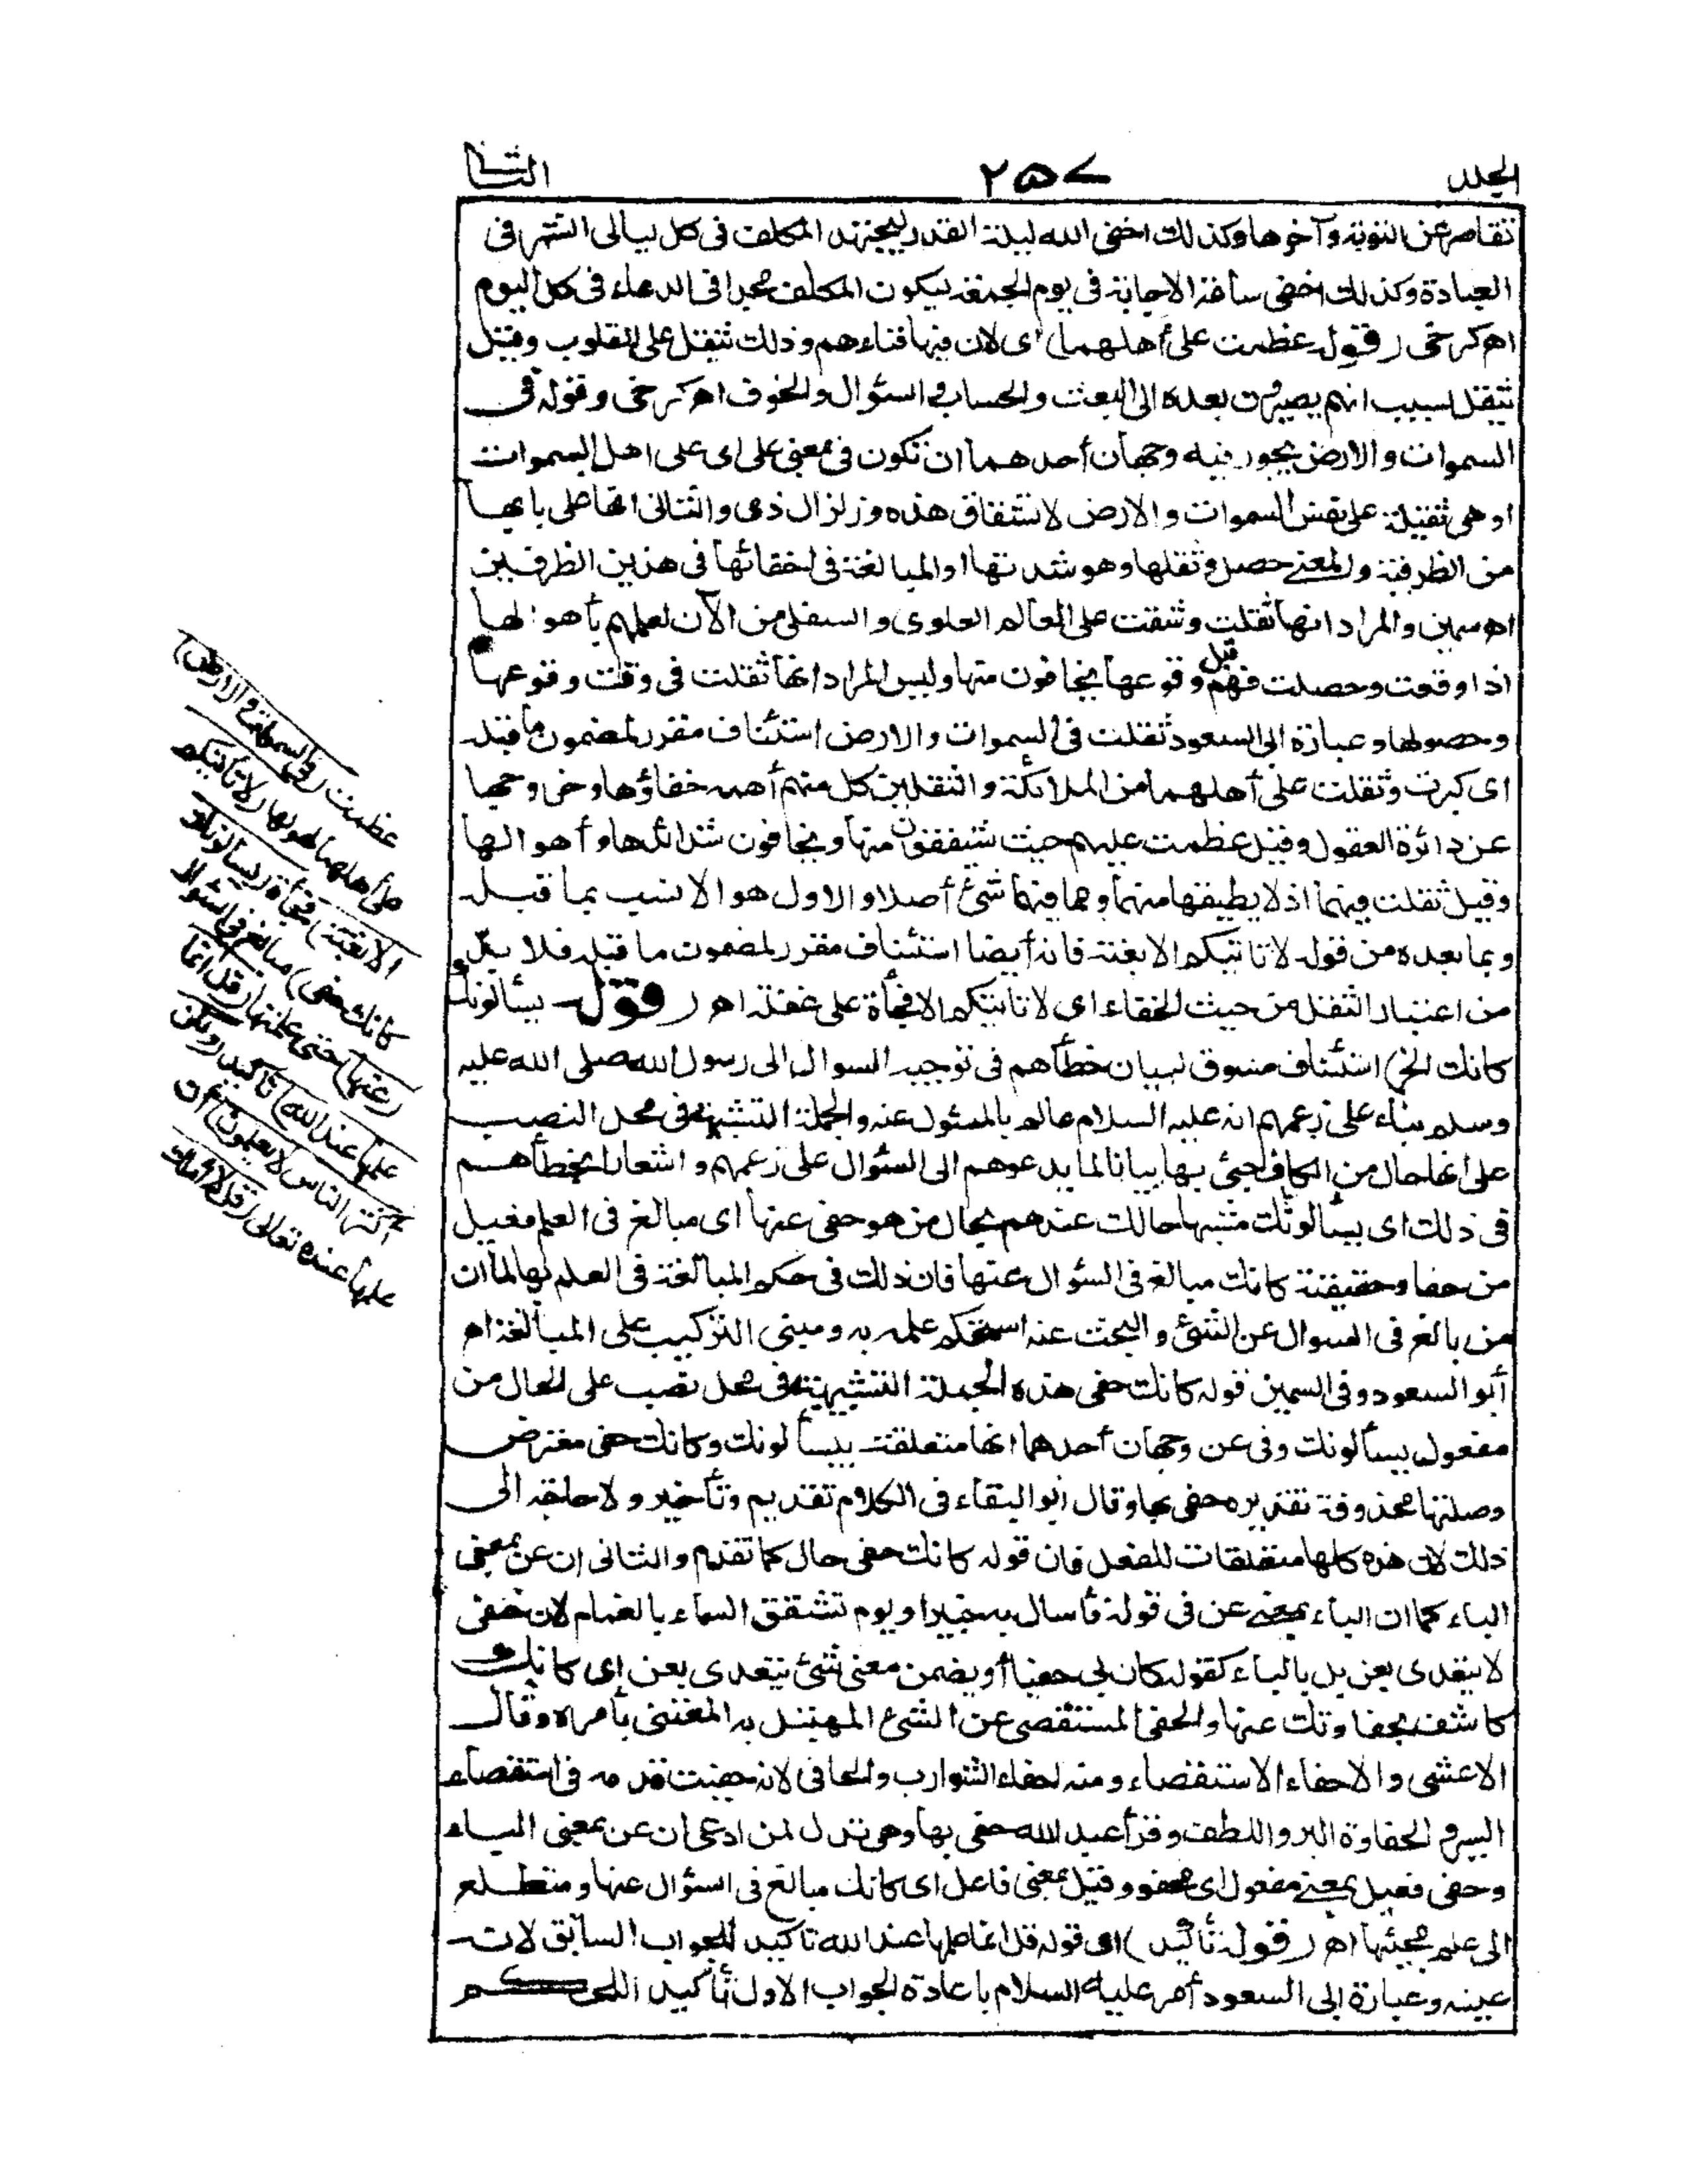 الجلد ٢٥٧ الثانى
تقاصر عن التوبة وآخرها وكذلك اخفى الله ليلة القدر ليجتهد المكلف فى كل ليالى الشهر فى
العبادة وكذلك اخفى ساعة الاجابة فى يوم الجمعة ليكون المكلف مجدا فى الدعاء فى كل اليوم
اهـ كرخى (قوله عظمت على أهلهما) اى لان فيها فناءهم وذلك تثقل على القلوب وقيل
تثقل بسبب انهم يصيرون بعده الى البعث والحساب والسؤال والخوف اهـ كرخى وقوله فى
السموات والارض يجوز فيه وجهان أحدهما ان تكون فى بمعنى على اى على اهل السموات
او هى ثقيلة على نفس السموات والارض لانشقاق هذه وزلزال ذى والثانى انها على بابها
من الظرفية والمعنى حصل ثقلها وهو شدتها او المبالغة فى اخفائها فى هذين الظرفين
اهـ سمين والمراد انها ثقلت وشقت على العالم العلوى والسفلى من الآن لعلمهم بأهوالها
اذا وقعت وحصلت فهم قبل وقوعها يخافون منها وليس المراد انها ثقلت فى وقت وقوعها
وحصولها وعبارة ابى السعود ثقلت فى السموات والارض استئناف مقرر لمضمون ما قبله
اى كبرت وثقلت على أهلهما من الملائكة والثقلين كل منهم أهمه خفاؤها وخروجها
عن دائرة العقول وقيل عظمت عليهم حيث يشفقون منها ويخافون شدائدها وأهوالها
وقيل ثقلت فيهما اذ لا يطيقها منهما ومما فيهما شئ أصلا والاول هو الانسب بما قبله
وبما بعده من قوله لا تاتيكم الا بغتة فانه أيضا استئناف مقرر لمضمون ما قبله فلا بد
من اعتبار الثقل من حيث الخفاء اى لا تاتيكم الا فجأة على غفلة اهـ (قوله يسألونك
كانك الخ) استئناف مسوق لبيان خطأهم فى توجيه السوال الى رسول الله صلى الله عليه
وسلم بناء على زعمهم انه عليه السلام عالم بالمسئول عنه والجملة التشبيهية فى محل النصب
على أنها حال من الكاف جئ بها بيانا لما يدعوهم الى السؤال على زعمهم واشعارا بخطأهم
فى ذلك اى يسألونك مشبها حالك عندهم بحال من هو حفى عنها أى مبالغ فى العلم فعيل
من حفا وحقيقته كانك مبالغ فى السؤال عنها فان ذلك فى حكم المبالغة فى العلم بها لما ان
من بالغ فى السوال عن الشئ والبحث عنه استحكم علمه به ومبنى التركيب على المبالغة اهـ
أبو السعود وفى السمين قوله كانك حفى هذه الجملة التشبيهية فى محل نصب على الحال من
مفعول يسألونك وفى عن وجهان أحدهما انها متعلقة بيسألونك وكانك حفى معترض
وصلتها محذوفة تقديره حفى بها وقال ابو البقاء فى الكلام تقديم وتأخير ولا حاجة الى
ذلك لان هذه كلها متعلقات للفعل فان قوله كانك حفى حال كما تقدم والثانى ان عن بمعنى
الباء كما ان الباء بمعنى عن فى قوله فأسال به خبيرا ويوم تشقق السماء بالغمام لان حفى
لا يتعدى بعن بل بالباء كقوله كان بى حفيا أو يضمن معنى شئ يتعدى بعن اى كانك
كاشف بحفاوتك عنها والحفى المستقصى عن الشئ المهتبل به المعتنى بأمره وقال
الاعشى والاحفاء الاستقصاء ومنه احفاء الشوارب والحافى لانه حفيت قدمه فى استقصاء
السير والحفاوة البر واللطف وقرأ عبد الله حفى بها وهى تدل لمن ادعى ان عن بمعنى الباء
وحفى فعيل بمعنى مفعول اى محفو وقيل بمعنى فاعل اى كانك مبالغ فى السؤال عنها ومتطلع
الى علم مجيئها اهـ (قوله تأكيد) اى قوله قل انما علمها عند الله تاكيد للجواب السابق لات
عينه وعبارة ابى السعود أمر عليه السلام باعادة الجواب الاول تأكيدا للحكم
عظمت (فى السموات والارض)
على أهلهما لهولها (لا تأتيكم
الا بغتة) فجأة (يسألونك
كانك حفى) مبالغ فى السؤال
(عنها) حتى علمتها (قل انما
علمها عند الله) تاكيد (ولكن
أكثر الناس لا يعلمون) أن
علمها عنده تعالى (قل لا أملك